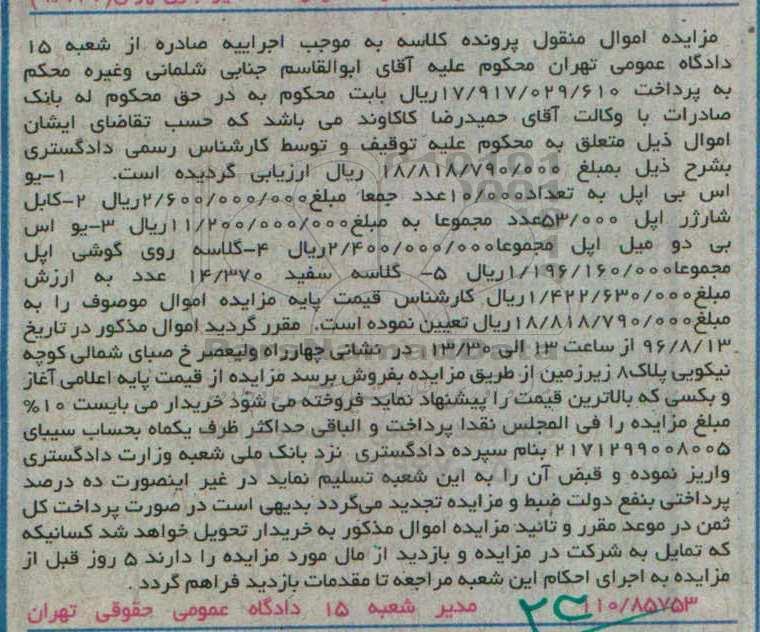 مزایده اموال منقول پرونده کلاسه به موجب اجراییه صادره از شعبه ۱۵
دادگاه عمومی تهران محکوم علیه آقای ابوالقاسم جنابی شلمانی وغیره محکم
به پرداخت ۱۷/۹۱۷/۰۲۹/۶۱۰ریال بابت محکوم به در حق محکوم له بانک
صادرات با وکالت آقای حمیدرضا کاکاوند می باشد که حسب تقاضای ایشان
اموال ذیل متعلق به محکوم علیه توقیف و توسط کارشناس رسمی دادگستری
بشرح ذیل بمبلغ ۱۸/۸۱۸/۷۹۰/۰۰۰ ریال ارزیابی گردیده است. ۱-یو
اس بی اپل به تعداد۱۰/۰۰۰عدد جمعا مبلغ۲/۶۰۰/۰۰۰/۰۰۰ریال ۲-کابل
شارژر اپل ۵۳/۰۰۰عدد مجموعا به مبلغ۱۱/۲۰۰/۰۰۰/۰۰۰ریال ۳-یو اس
بی دو میل اپل مجموعا۲/۴۰۰/۰۰۰/۰۰۰ریال ۴-گلاسه روی گوشی اپل
مجموعا۱/۱۹۶/۱۶۰/۰۰۰ریال ۵- گلاسه سفید ۱۴/۳۷۰ عدد به ارزش
مبلغ۱/۴۲۲/۶۳۰/۰۰۰ریال کارشناس قیمت پایه مزایده اموال موصوف را به
مبلغ۱۸/۸۱۸/۷۹۰/۰۰۰ریال تعیین نموده است. مقرر گردید اموال مذکور در تاریخ
۹۶/۸/۱۳ از ساعت ۱۳ الی ۱۳/۳۰ در نشانی چهارراه ولیعصر خ صبای شمالی کوچه
نیکویی پلاک۸ زیرزمین از طریق مزایده بفروش برسد مزایده از قیمت پایه اعلامی آغاز
و بکسی که بالاترین قیمت را پیشنهاد نماید فروخته می شود خریدار می بایست ۱۰%
مبلغ مزایده را فی المجلس نقدا پرداخت و الباقی حداکثر ظرف یکماه بحساب سیبای
۲۱۷۱۲۹۹۰۰۸۰۰۵ بنام سپرده دادگستری نزد بانک ملی شعبه وزارت دادگستری
واریز نموده و قبض آن را به این شعبه تسلیم نماید در غیر اینصورت ده درصد
پرداختی بنفع دولت ضبط و مزایده تجدید می‌گردد بدیهی است در صورت پرداخت کل
ثمن در موعد مقرر و تائید مزایده اموال مذکور به خریدار تحویل خواهد شد کسانیکه
که تمایل به شرکت در مزایده و بازدید از مال مورد مزایده را دارند ۵ روز قبل از
مزایده به اجرای احکام این شعبه مراجعه تا مقدمات بازدید فراهم گردد .
۱۱۰/۸۵۷۵۳ مدیر شعبه ۱۵ دادگاه عمومی حقوقی تهران